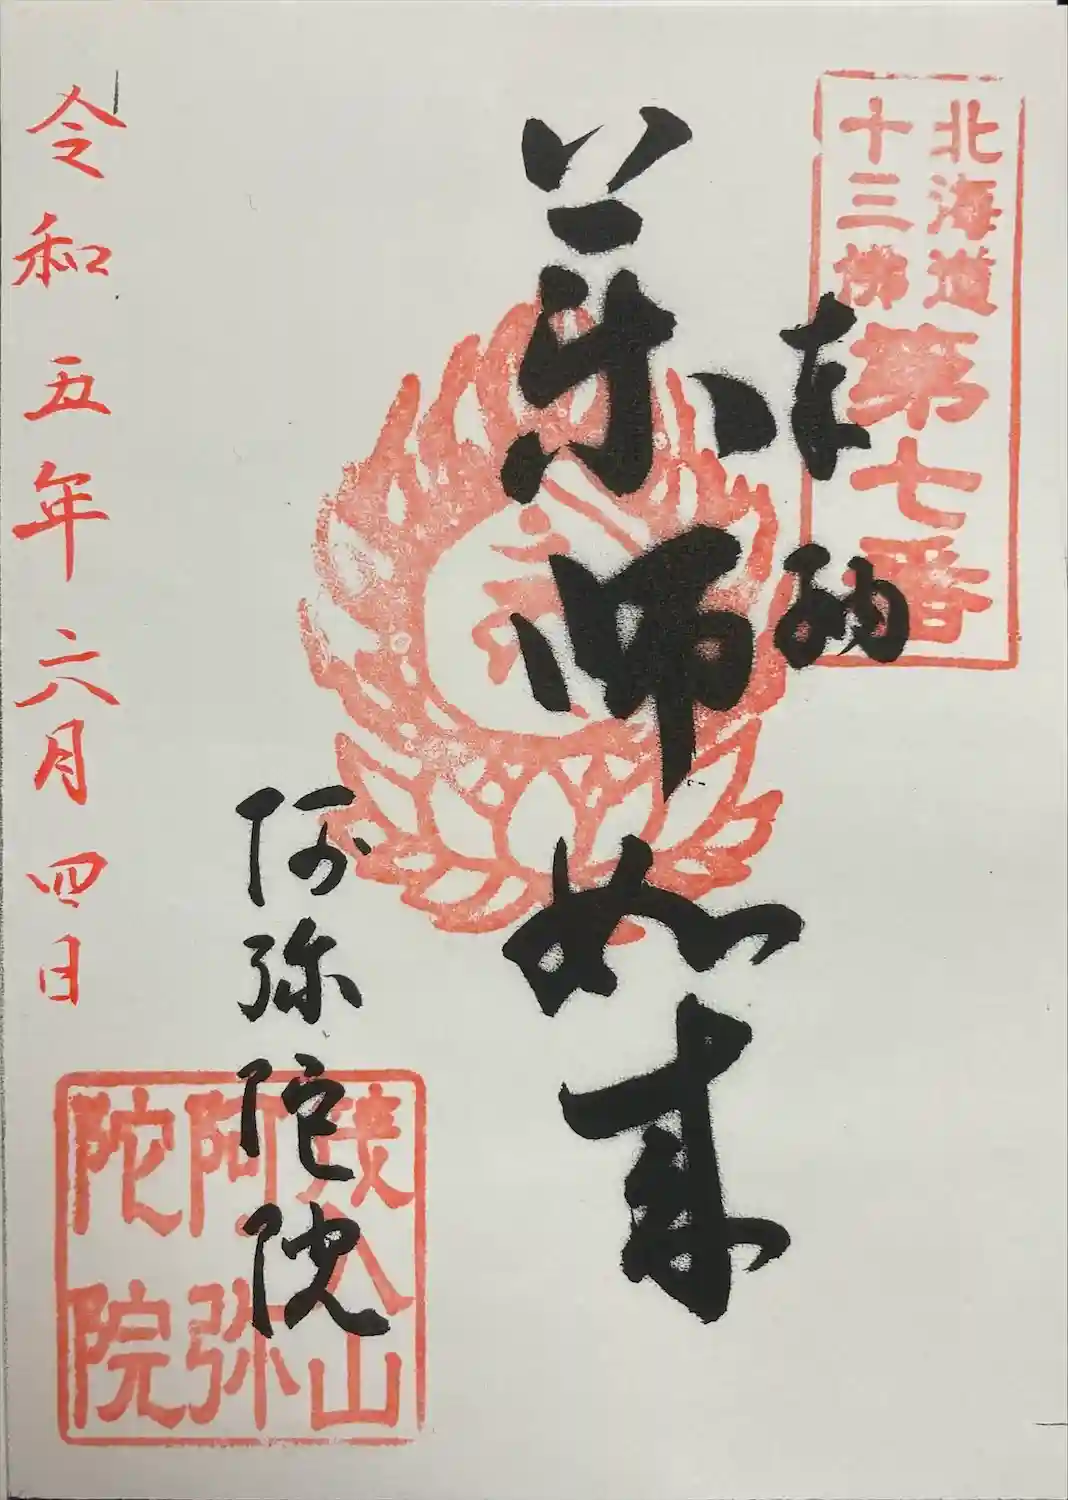 北海道
十三佛
第七番
奉納
薬師如来
阿弥陀院
茂入山
阿弥
陀院
令和五年六月四日